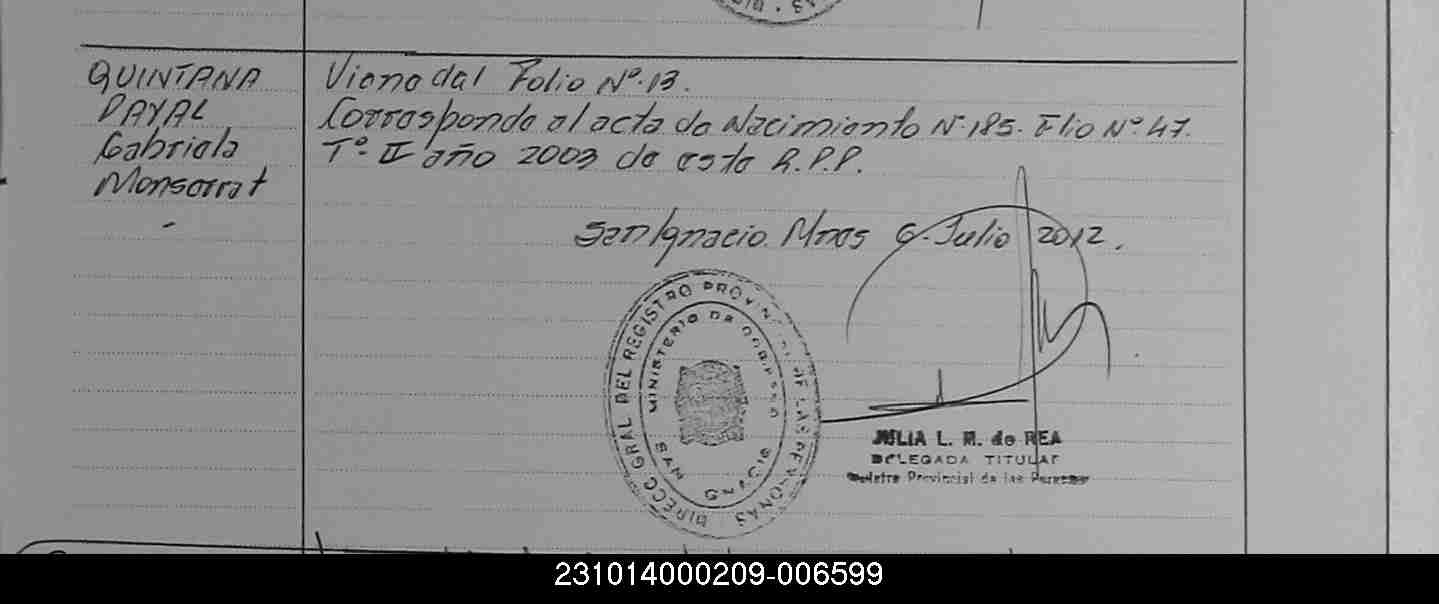 QUINTANA
DAYAL
Gabriela
Monserrat
Viene del Folio Nº.13.
Corresponde al acta de Nacimiento Nº185. Flio Nº 47.
Tº II año 2003 de este R.P.P.
San Ignacio. Mnes 6. Julio 2012.
DIRECC. GRAL DEL REGISTRO PROVINCIAL DE LAS PERSONAS
MINISTERIO DE GOBIERNO
SAN IGNACIO
JULIA L. M. de REA
DELEGADA TITULAR
Registro Provincial de las Personas
231014000209-006599